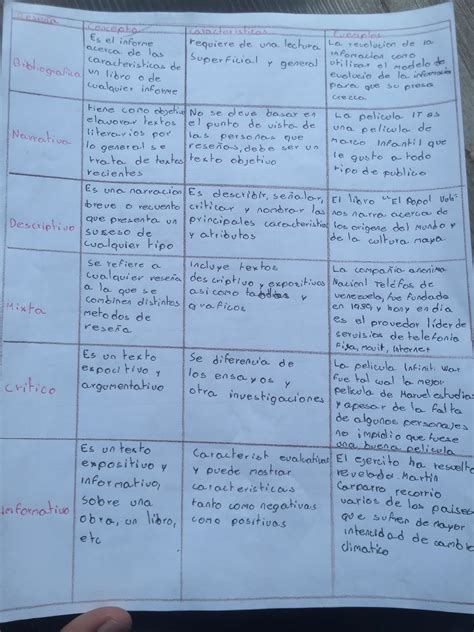 Reseña Concepto Características Ejemplos
Bibliografica
Es el informe
acerca de las
caracteristicas de
un libro o de
cualquier informe
requiere de una lectura
superficial y general
La revolucion de la
infomacion como
utilizar el modelo de
evolucio de la informacion
para que su
crezca
Narrativa
tiene como objetivo
elavorar textos
literarios por
lo general se
trata de textos
recientes
No se deve basar en
el punto de vista de
las personas que
reseñas, debe ser un
texto objetivo
La pelicula IT es
una pelicula de
marco infantil que
le gusto a todo
tipo de publico
Descriptivo
Es una narracion
breve o recuento
que presenta un
suseso de
cualquier tipo
Es describir, señalar,
criticar y nombrar las
principales caracteristicas
y atributos
El libro "El Popol Vuh"
nos narra acerca de
los origene del mundo y
de la cultura maya
Mixta
Se refiere a
cualquier reseña
a la que se
combinen distintos
metodos de
reseña
Incluye textos
descriptivo y expositivos
asi como tablas y
graficos
La compañia anonima
Nacional Teléfos de
venezuela, fue fundada
en 1950, y hoy en dia
es el provedor líder de
servisios de telefonia
Fija, Internet
Critico
Es un texto
espocitivo y
argumentativo
Se diferencia de
los ensayos y
otra investigaciones
La pelicula Infinit War
fue tal wal la mejor
pelicula de Marvel estudios
y apesar de la falta
de algunos personajes
no impidio que fuese
una buena pelicula
Informativo
Es un texto
expositivo y
informativo,
sobre una
obra, un libro,
etc
Caracterist evaluativas
y puede mostrar
caracteristicas
tanto como negativas
como positivas
El ejercito ha resuelto
revelado. Martin
Carparro recorrio
varios de los paises
que sufren de mayor
intencidad de cambio
climatico